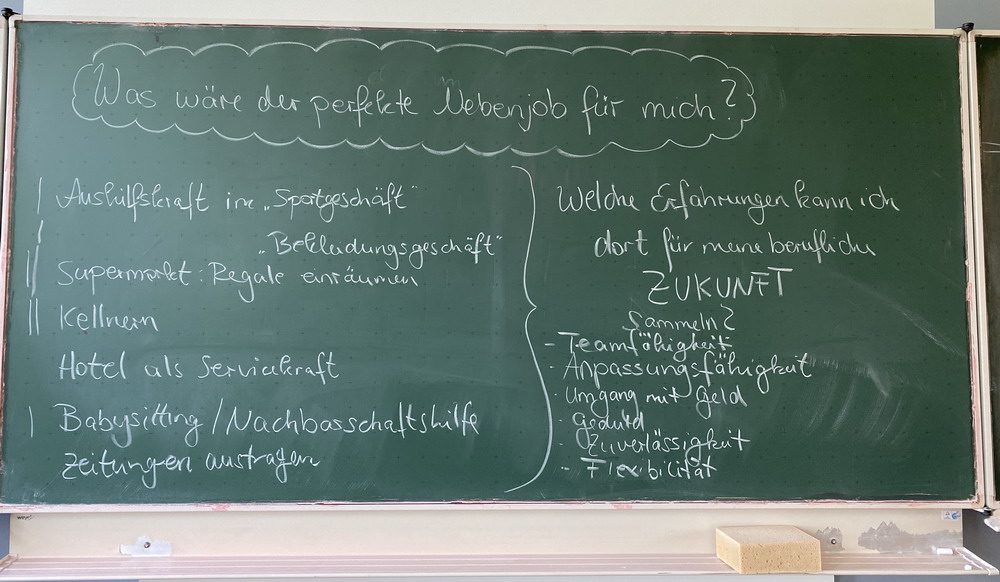 Was wäre der perfekte Nebenjob für mich?
| Aushilfskraft im „Sportgeschäft"
| „Bekleidungsgeschäft"
|| Supermarkt: Regale einräumen
|| Kellnern
Hotel als Servicekraft
| Babysitting / Nachbarschaftshilfe
Zeitungen austragen
Welche Erfahrungen kann ich
dort für meine berufliche
ZUKUNFT
sammeln?
- Teamfähigkeit
- Anpassungsfähigkeit
- Umgang mit Geld
- Geduld
- Zuverlässigkeit
- Flexibilität